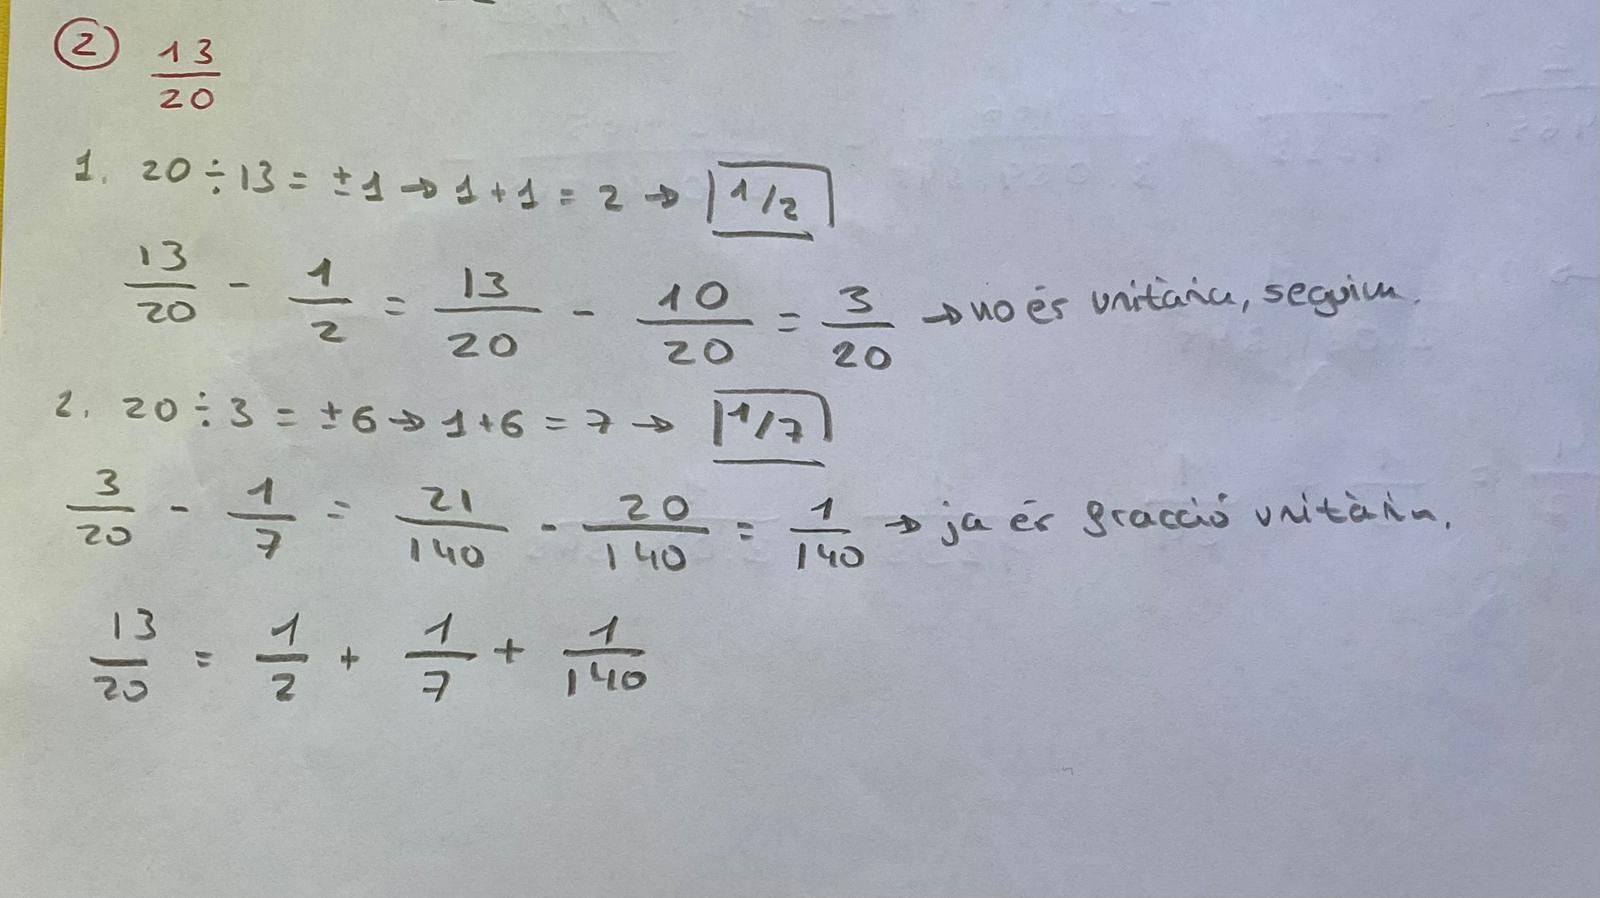 2 13/20
1. 20 ÷ 13 = ±1 → 1 + 1 = 2 → 1/2
13/20 - 1/2 = 13/20 - 10/20 = 3/20 → no és unitària, seguim.
2. 20 ÷ 3 = ±6 → 1 + 6 = 7 → 1/7
3/20 - 1/7 = 21/140 - 20/140 = 1/140 → ja és fracció unitària.
13/20 = 1/2 + 1/7 + 1/140